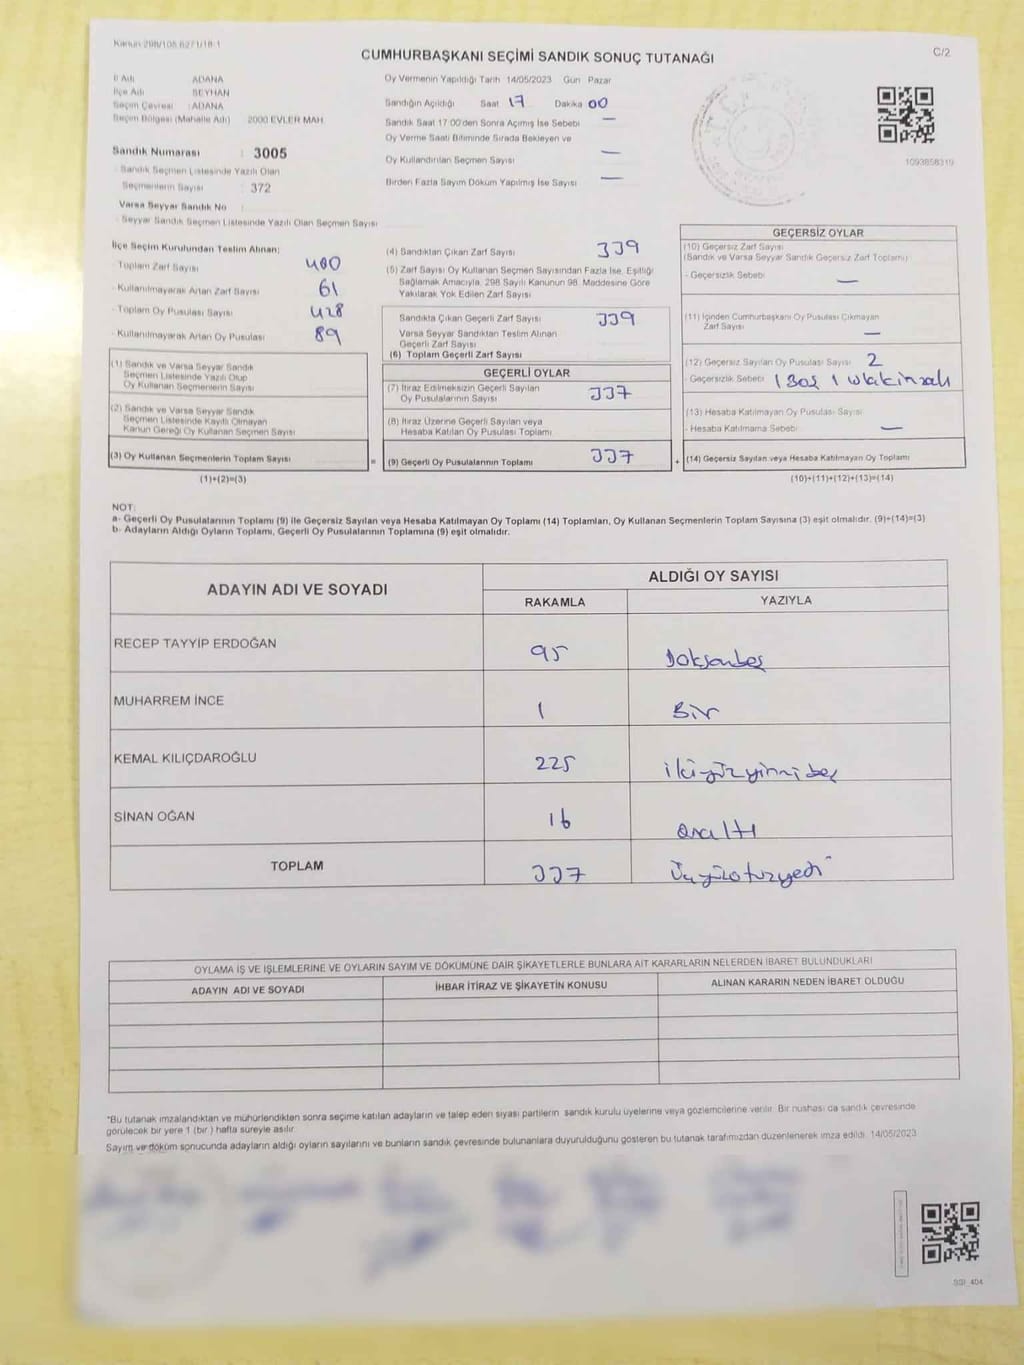 Kanun 298/105 6271/18-1
C/2
CUMHURBAŞKANI SEÇİMİ SANDIK SONUÇ TUTANAĞI
İl Adı ADANA
İlçe Adı SEYHAN
Seçim Çevresi : ADANA
Seçim Bölgesi (Mahalle Adı) 2000 EVLER MAH.
Sandık Numarası : 3005
- Sandık Seçmen Listesinde Yazılı Olan
Seçmenlerin Sayısı : 372
Varsa Seyyar Sandık No :
- Seyyar Sandık Seçmen Listesinde Yazılı Olan Seçmen Sayısı
Oy Vermenin Yapıldığı Tarih 14/05/2023 Gün Pazar
Sandığın Açıldığı Saat 17 Dakika 00
Sandık Saat 17:00'den Sonra Açılmış İse Sebebi —
Oy Verme Saati Bitiminde Sırada Bekleyen ve
Oy Kullandırılan Seçmen Sayısı —
Birden Fazla Sayım Döküm Yapılmış İse Sayısı —
1093858319
İlçe Seçim Kurulundan Teslim Alınan;
- Toplam Zarf Sayısı 400
- Kullanılmayarak Artan Zarf Sayısı 61
- Toplam Oy Pusulası Sayısı 428
- Kullanılmayarak Artan Oy Pusulası 89
(1) Sandık ve Varsa Seyyar Sandık
Seçmen Listesinde Yazılı Olup
Oy Kullanan Seçmenlerin Sayısı
(2) Sandık ve Varsa Seyyar Sandık
Seçmen Listesinde Kayıtlı Olmayan
Kanun Gereği Oy Kullanan Seçmen Sayısı
(3) Oy Kullanan Seçmenlerin Toplam Sayısı =
(1)+(2)=(3)
(4) Sandıktan Çıkan Zarf Sayısı 339
(5) Zarf Sayısı Oy Kullanan Seçmen Sayısından Fazla İse, Eşitliği
Sağlamak Amacıyla, 298 Sayılı Kanunun 98. Maddesine Göre
Yakılarak Yok Edilen Zarf Sayısı
Sandıkta Çıkan Geçerli Zarf Sayısı 339
Varsa Seyyar Sandıktan Teslim Alınan
Geçerli Zarf Sayısı
(6) Toplam Geçerli Zarf Sayısı
GEÇERLİ OYLAR
(7) İtiraz Edilmeksizin Geçerli Sayılan
Oy Pusulalarının Sayısı 337
(8) İtiraz Üzerine Geçerli Sayılan veya
Hesaba Katılan Oy Pusulası Toplamı
(9) Geçerli Oy Pusulalarının Toplamı 337 +
GEÇERSİZ OYLAR
(10) Geçersiz Zarf Sayısı
(Sandık ve Varsa Seyyar Sandık Geçersiz Zarf Toplamı)
- Geçersizlik Sebebi —
(11) İçinden Cumhurbaşkanı Oy Pusulası Çıkmayan
Zarf Sayısı —
(12) Geçersiz Sayılan Oy Pusulası Sayısı 2
- Geçersizlik Sebebi 1 Boş 1
(13) Hesaba Katılmayan Oy Pusulası Sayısı
- Hesaba Katılmama Sebebi —
(14) Geçersiz Sayılan veya Hesaba Katılmayan Oy Toplamı
(10)+(11)+(12)+(13)=(14)
NOT:
a- Geçerli Oy Pusulalarının Toplamı (9) ile Geçersiz Sayılan veya Hesaba Katılmayan Oy Toplamı (14) Toplamları, Oy Kullanan Seçmenlerin Toplam Sayısına (3) eşit olmalıdır. (9)+(14)=(3)
b- Adayların Aldığı Oyların Toplamı, Geçerli Oy Pusulalarının Toplamına (9) eşit olmalıdır.
ADAYIN ADI VE SOYADI ALDIĞI OY SAYISI
RAKAMLA YAZIYLA
RECEP TAYYİP ERDOĞAN 95 Doksanbeş
MUHARREM İNCE 1 Bir
KEMAL KILIÇDAROĞLU 225 ikiyüzyirmibeş
SİNAN OĞAN 16 onaltı
TOPLAM 337 Üçyüzotuzyedi
OYLAMA İŞ VE İŞLEMLERİNE VE OYLARIN SAYIM VE DÖKÜMÜNE DAİR ŞİKAYETLERLE BUNLARA AİT KARARLARIN NELERDEN İBARET BULUNDUKLARI
ADAYIN ADI VE SOYADI İHBAR İTİRAZ VE ŞİKAYETİN KONUSU ALINAN KARARIN NEDEN İBARET OLDUĞU
*Bu tutanak imzalandıktan ve mühürlendikten sonra seçime katılan adayların ve talep eden siyasi partilerin sandık kurulu üyelerine veya gözlemcilerine verilir. Bir nüshası da sandık çevresinde
görülecek bir yere 1 (bir) hafta süreyle asılır.
Sayım ve döküm sonucunda adayların aldığı oyların sayılarını ve bunların sandık çevresinde bulunanlara duyurulduğunu gösteren bu tutanak tarafımızdan düzenlenerek imza edildi. 14/05/2023
SSI_404